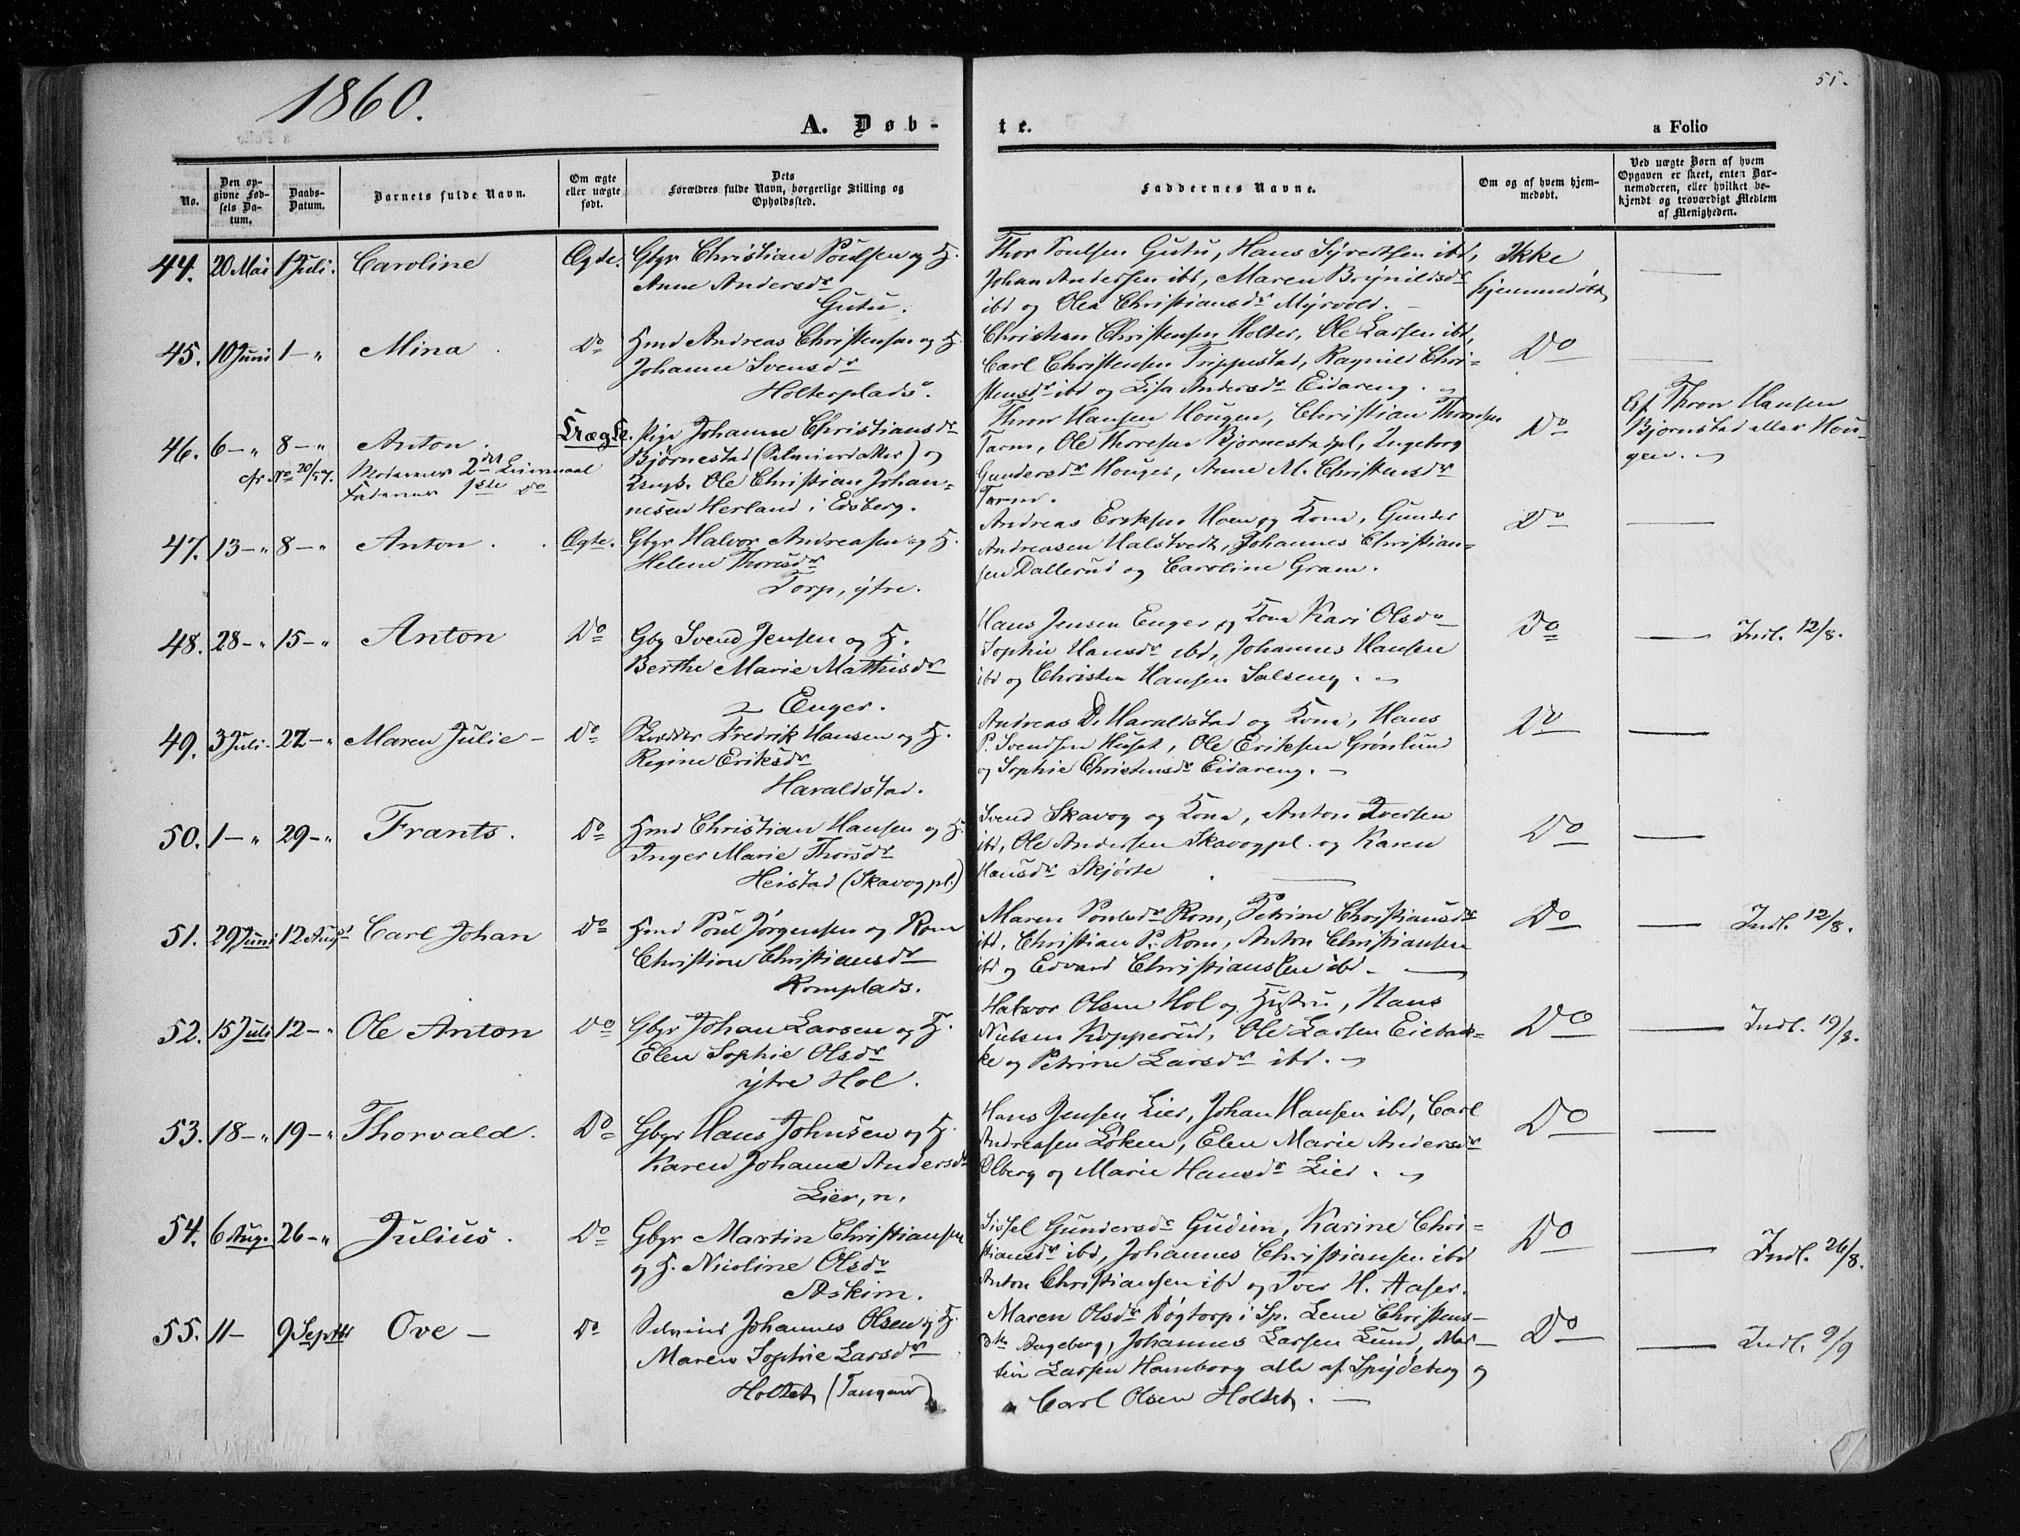 1860.
55.
A. Døb-
te.
a Folio
No.
Den op-
givne Fød-
sels Da-
tum.
Daabs-
Datum.
Barnets fulde Navn.
Om ægte
eller uægte
født.
Dets
Forældres fulde Navn, borgerlige Stilling og
Opholdssted.
Faddernes Navne.
Om og af hvem hjem-
medøbt.
Ved uægte Børn af hvem
Opgaven er skeet, enten Bar-
nemoderen, eller hvilket be-
kjendt og troværdigt Medlem
af Menigheden.
44. 20 Mai 1 Juli. Caroline Ægte. Gbgr Christian Poulsen og H.
Anne Andersdr
Gutu.
Thor Poulsen Gutu, Hans Syvertsen ibd,
Johan Andersen ibd, Maren Brynildsdr
ibd og Olea Christiansdr Myrvold. -
Ikke
hjemmedøbt
45. 10 Juni 1-" Mina . Do Hmd Andreas Christensen og H.
Johanne Svensdr
Holterplads.
Christian Christensen Holter, Ole Larsen ibd,
Carl Christensen Trippestad, Ragnild Chri-
stensdr ibd og Lisa Andersdr Eidareng.
Do
46. 6-" 8-" Anton. Uægte. Pige Johanne Christiansdr
cfr No 20/57. Moderens 2det Leiermaal
Faderens 1ste Do
Bjørnestad (Salmieraker) og
Ungk. Ole Christian Johan-
nesen Herland i Edsberg.
Thron Hansen Hougen, Christian Thronsen
Tarm, Ole Thoresen Bjørnestadpl, Ingeborg
Gundersdr Hougen, Anne M. Christensdr
Tarm.
Do
Af Thron Hansen
Bjørnstad eller Hou-
gen.
47. 13-" 8-" Anton. . Ægte. Gbgr Halvor Andreasen og H.
Helene Thoresdr
Torp, ytre.
Andreas Eriksen Hoen og Kona, Gunder
Andreasen Halstvedt, Johannes Christian-
sen Dallerud og Caroline Gram.
Do
48. 28-" 15-" Anton Do Gbg Svend Jensen og H.
Berthe Marie Mathisdr
Enger.
Hans Jensen Enger og Kona Kari Olsdr
Sophie Hansdr ibd, Johannes Hansen
ibd og Christen Hansen Salseng.
Do
Indl. 12/8.
49. 3 Juli. 22-" Maren Julie- Do Fredrik Hansen og H.
Regine Eriksdr
Haraldstad.
Andreas D. Haraldstad og Kona, Hans
P. Svendsen Huset, Ole Eriksen Grønlund
og Sophie Christensdr Eidareng.
Do
50. 1-" 29-" Frants. Do Hmd Christian Hansen og H.
Inger Marie Thorsdr
Heistad (Skavogpl.)
Svend Skavog og Kona, Anton Iversen
ibd, Ole Andersen Skavogpl. og Karen
Hansdr Skjørte
Do
51. 29 Juni 12 Augst Carl Johan Do Hmd Poul Jørgensen og Kone
Christine Christiansdr
Romplads.
Maren Poulsdr Rom, Petrine Christiansdr
ibd, Christian P. Rom, Anton Christiansen
ibd og Edvard Christiansen ibd.
Do
Indl. 12/8.
52. 15 Juli 12-" Ole Anton Do Gbgr Johan Larsen og H.
Elen Sophie Olsdr
ytre Hol.
Halvor Olsen Hol og Hustru, Hans
Nielsen Kopperud, Ole Larsen Eiebak-
ke og Petrine Larsdr ibd.
Do
Indl. 19/8.
53. 18-" 19-" Thorvald. Do Gbgr Hans Johnsen og H.
Karen Johanne Andersdr
Lier, n.
Hans Jensen Lier, Johan Hansen ibd, Carl
Andreasen Løken, Elen Marie Andersdr
Olberg og Marie Hansdr Lier.
Do
54. 6 Aug. 26-" Julius. Do Gbgr Martin Christiansen
og H. Nicoline Olsdr
Askim.
Sissel Gundersdr Gudim, Karine Chri-
stiansdr ibd, Johannes Christiansen ibd
Anton Christiansen ibd og Iver H. Aaser.
Do
Indl. 26/8.
55. 11- 9 Septbr Ove- Do Johannes Olsen og H.
Maren Sophie Larsdr
Holtet (Tangen)
Maren Olsdr Døgtorp i Sp. Lene Christens-
dtr Aageberg, Johannes Larsen Lund, Mar-
tin Larsen Hamborg alle af Spydeberg og
Carl Olsen Holtet.
Do
Indl. 9/9